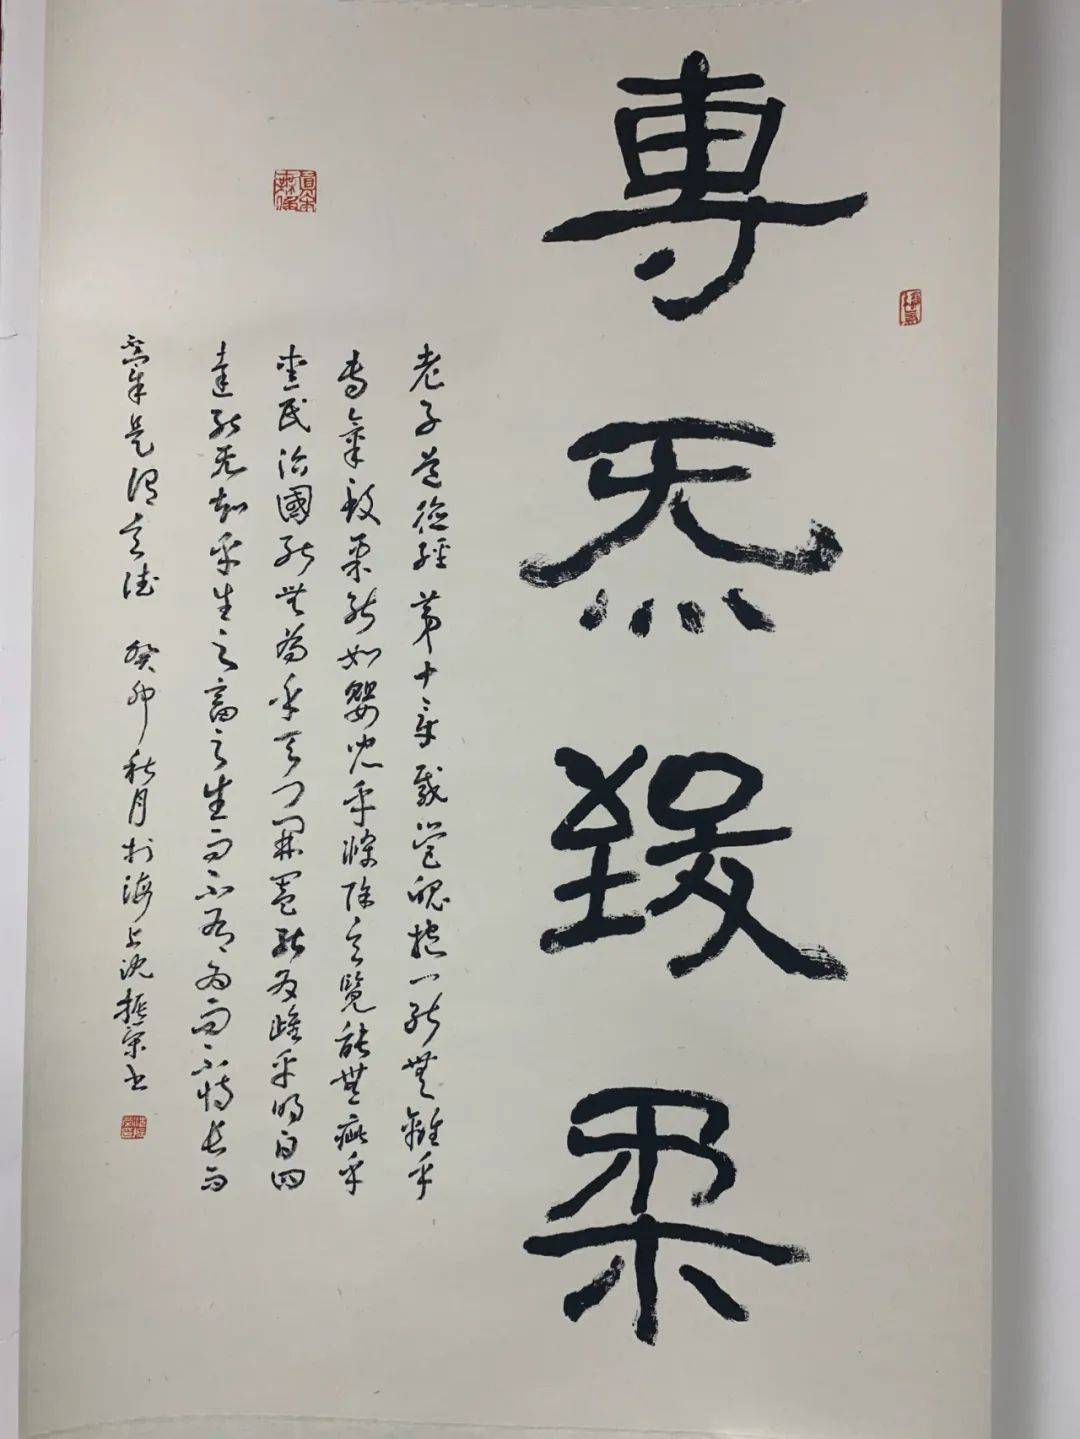 專炁致柔
老子道德經第十章載營魄抱一能無離乎
專氣致柔能如嬰兒乎滌除玄覽能無疵乎
愛民治國能無為乎天門開闔能為雌乎明白四
達能无知乎生之畜之生而不有為而不恃長而
不宰是謂玄德 癸卯秋月於海上沈振榮書